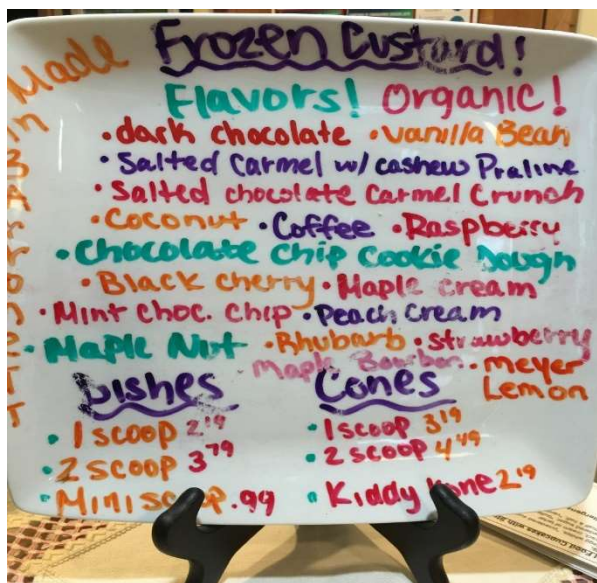 Frozen Custard!
Made in
Flavors! Organic!
• dark chocolate • Vanilla Bean
• Salted Carmel w/ cashew Praline
• Salted chocolate Carmel Crunch
• Coconut • Coffee • Raspberry
• Chocolate Chip Cookie Dough
• Black cherry • Maple cream
• Mint choc. chip • Peach Cream
• Maple Nut • Rhubarb • strawberry
Maple Bourbon • meyer Lemon
Dishes
• 1 scoop 2.19
• 2 scoop 3.79
• Mini scoop .99
Cones
• 1 scoop 3.19
• 2 scoop 4.49
• Kiddy Kone 2.19